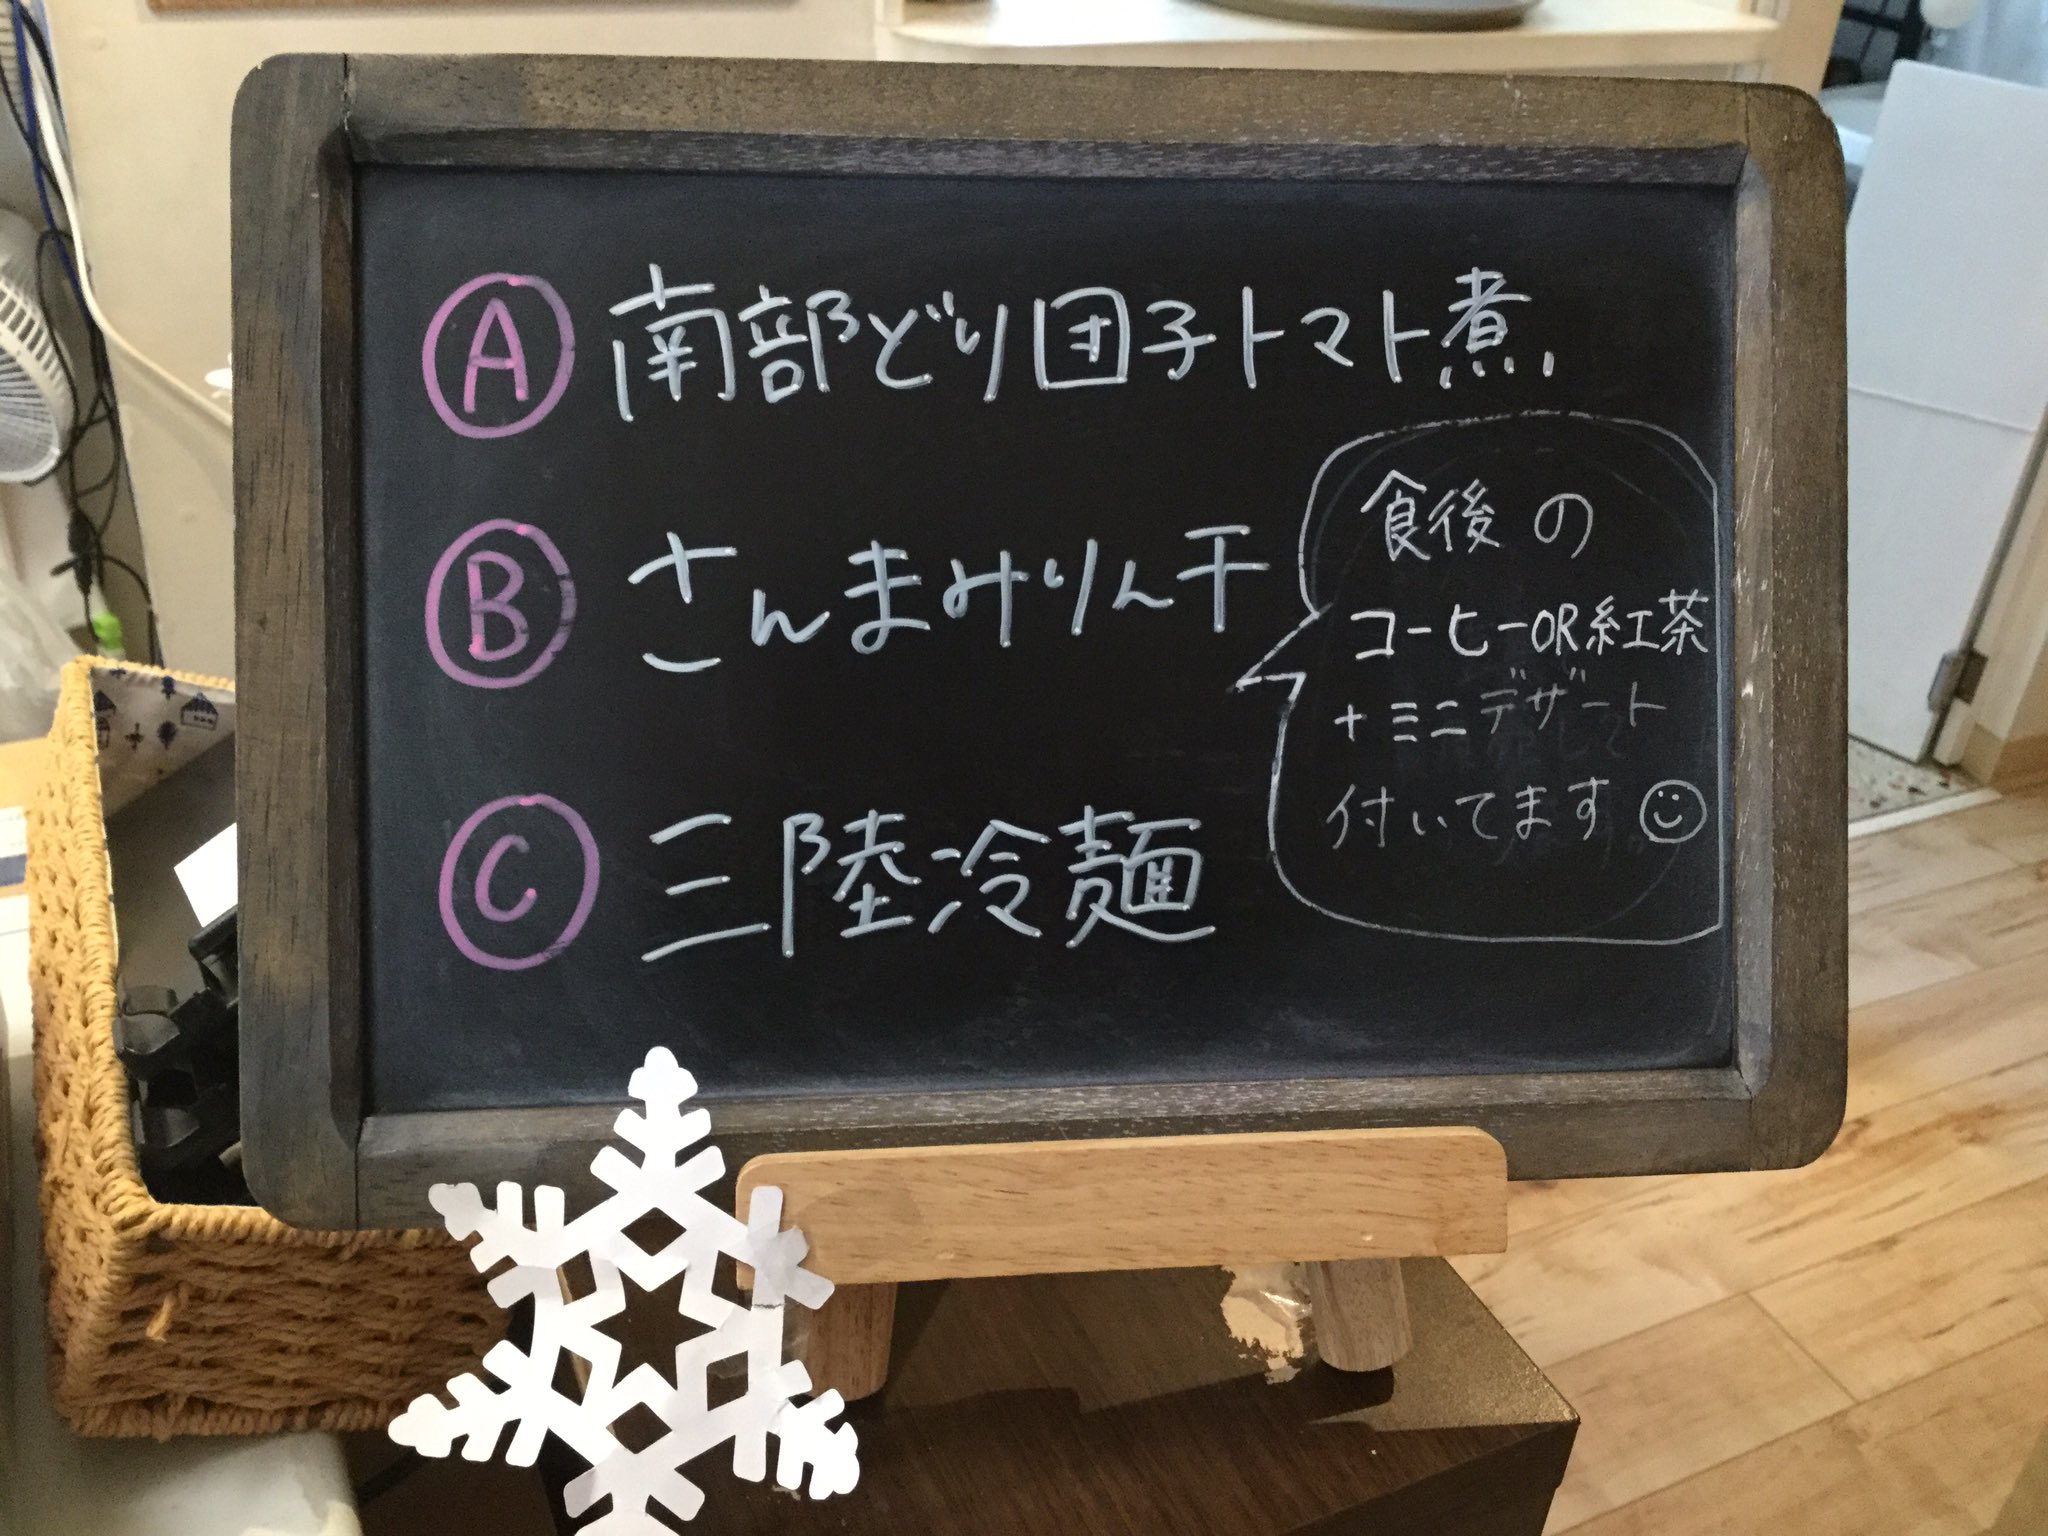 Ⓐ 南部どり団子トマト煮
Ⓑ さんまみりん干
Ⓒ 三陸冷麺
食後の
コーヒーOR紅茶
+ミニデザート
付いてます☺